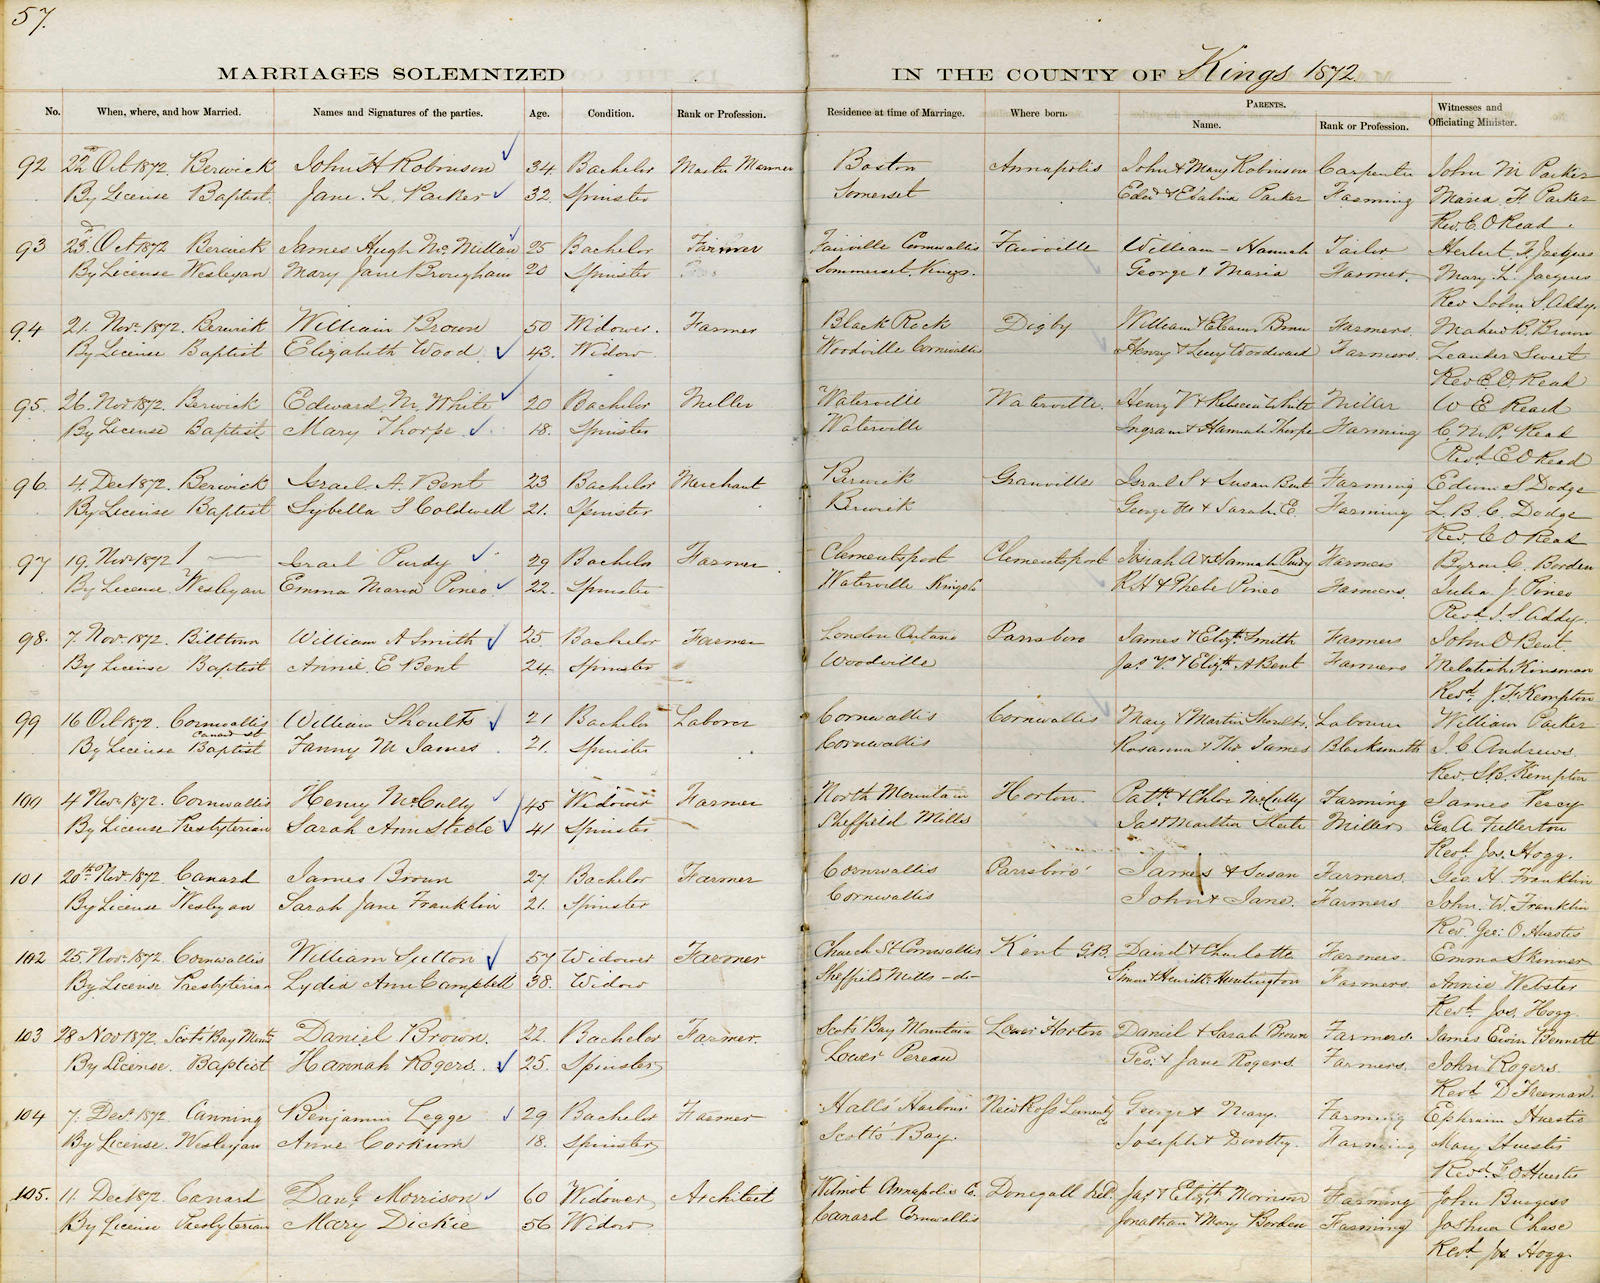 57.
MARRIAGES SOLEMNIZED IN THE COUNTY OF Kings 1872
No. When, where, and how Married. Names and Signatures of the parties. Age. Condition. Rank or Profession. Residence at time of Marriage. Where born. PARENTS. Name. Rank or Profession. Witnesses and Officiating Minister.
92 22nd Oct 1872 Berwick John H Robinson 34 Bachelor Master Mariner Boston Annapolis John & Mary Robinson Carpenter John M Parker
By License Baptist Jane L. Parker 32 Spinster Somerset Edwd & Ebalina Parker Farming Maria F Parker
Rev. E. O Read.
93 23rd Oct 1872 Berwick James Hugh McMillan 25 Bachelor Farmer Fairville Cornwallis Fairville William - Hannah Tailor Herbert F. Jacques
By License Wesleyan Mary Jane Brougham 20 Spinster Sommerset, Kings. George & Maria Farmer. Mary L. Jacques
Rev John S. Addy.
94 21. Novr 1872. Berwick William Brown 50 Widower. Farmer Black Rock Digby William & Brown Farmers. R. Brown
By License Baptist Elizabeth Wood 43. Widow Woodville Cornwallis Henry & Lucy Woodward Farmers. Leander Sweet
Rev E. O Read
95. 26. Nov 1872. Berwick Edward M. White 20 Bachelor Miller Waterville Waterville. Henry V & Rebecca White Miller W E Read
By License Baptist. Mary Thorpe 18. Spinster Waterville Ingram & Hannah Thorpe Farming C. M. P. Read
Revd. E O Read
96. 4. Dec 1872. Berwick Israel. A. Bent 23 Bachelor Merchant Berwick Granville Israel S & Susan Bent Farming Edwin S Dodge
By License Baptist Sybella F Coldwell 21. Spinster Berwick George & Sarah. E. Farming L. B. C. Dodge
Rev. E O Read
97 19. Novr 1872 Israel Purdy 29 Bachelor Farmer Clementsport Clementsport Josiah A & Hannah Purdy Farmers Byron C. Borden
By License. Wesleyan Emma Maria Pineo 22. Spinster Waterville Kings Co R H & Phebe Pineo Farmers. Julia J. Pineo
Revd J. S. Addy.
98. 7. Novr 1872. Billtown William A Smith 25. Bachelor Farmer London Ontario Parrsboro James & Elizth Smith Farmers John O Bent.
By License Baptist Annie E Bent 24. Spinster Woodville Jas. V. & Elizth A Bent Farmers Melatiah Kinsman
Revd. J. F. Kempton
99 16 Oct 1872. Cornwallis William Shoults 21 Bachelor Laborer Cornwallis Cornwallis Mary & Martin Shoults. Labourer William Parker
Canard St
By License Baptist Fanny M James 21. Spinster Cornwallis Rosanna & Thos James Blacksmith J. C Andrews
Rev. S B. Kempton
100 4 Novr 1872. Cornwallis Henry McCully 45 Widower Farmer North Mountain Horton. Patk. & Chloe McCully Farming James Percy
By License Presbyterian Sarah Ann Steele 41 Spinster Sheffield Mills Jas & Martha Steele Miller Geo A. Fullerton
Revd. Jos. Hogg.
101 20th. Novr 1872. Canard James Brown 27 Bachelor Farmer Cornwallis Parrsboro' James & Susan Farmers. Geo. H. Franklin
By License Wesleyan Sarah Jane Franklin 21. Spinster Cornwallis John & Jane. Farmers John. W. Franklin
Revd. Geo. O Huestis
102 25. Novr. 1872 Cornwallis William Sutton 57 Widower Farmer Church St Cornwallis Kent G.B. David & Charlotte Farmers. Emma Skinner
By License Presbyterian Lydia Ann Campbell 38. Widow Sheffield Mills -do- Simon & Henritta Huntington Farmers. Annie Webster
Revd. Jos. Hogg.
103 28 Nov 1872. Scots Bay Mount Daniel Brown. 22. Bachelor Farmer. Scots Bay Mountain Lower Horton Daniel & Sarah Brown Farmers. James Ewin Bennett
By License. Baptist Hannah Rogers. 25. Spinster Lower Pereau Geo. & Jane Rogers. Farmers. John Rogers
Revd D Freeman.
104 7. Decr. 1872. Canning Benjamin Legge 29 Bachelor Farmer Halls' Harbour New Ross Lunenby Co George & Mary. Farming Ephraim Huestis
By License. Wesleyan Anne Corkum 18. Spinster Scotts' Bay. Joseph & Dorothy. Farming Mary Huestis
Revd G O Huestis
105. 11. Dec 1872. Canard Danl. Morrison 60 Widower Architect Wilmot Annapolis Co. Donegall Irel. Jas. & Elizth Morrison Farming John Burgess
By License Presbyterian Mary Dickie 56 Widow Canard Cornwallis Jonathan & Mary Borden Farming Joshua Chase
Revd. Jos. Hogg.